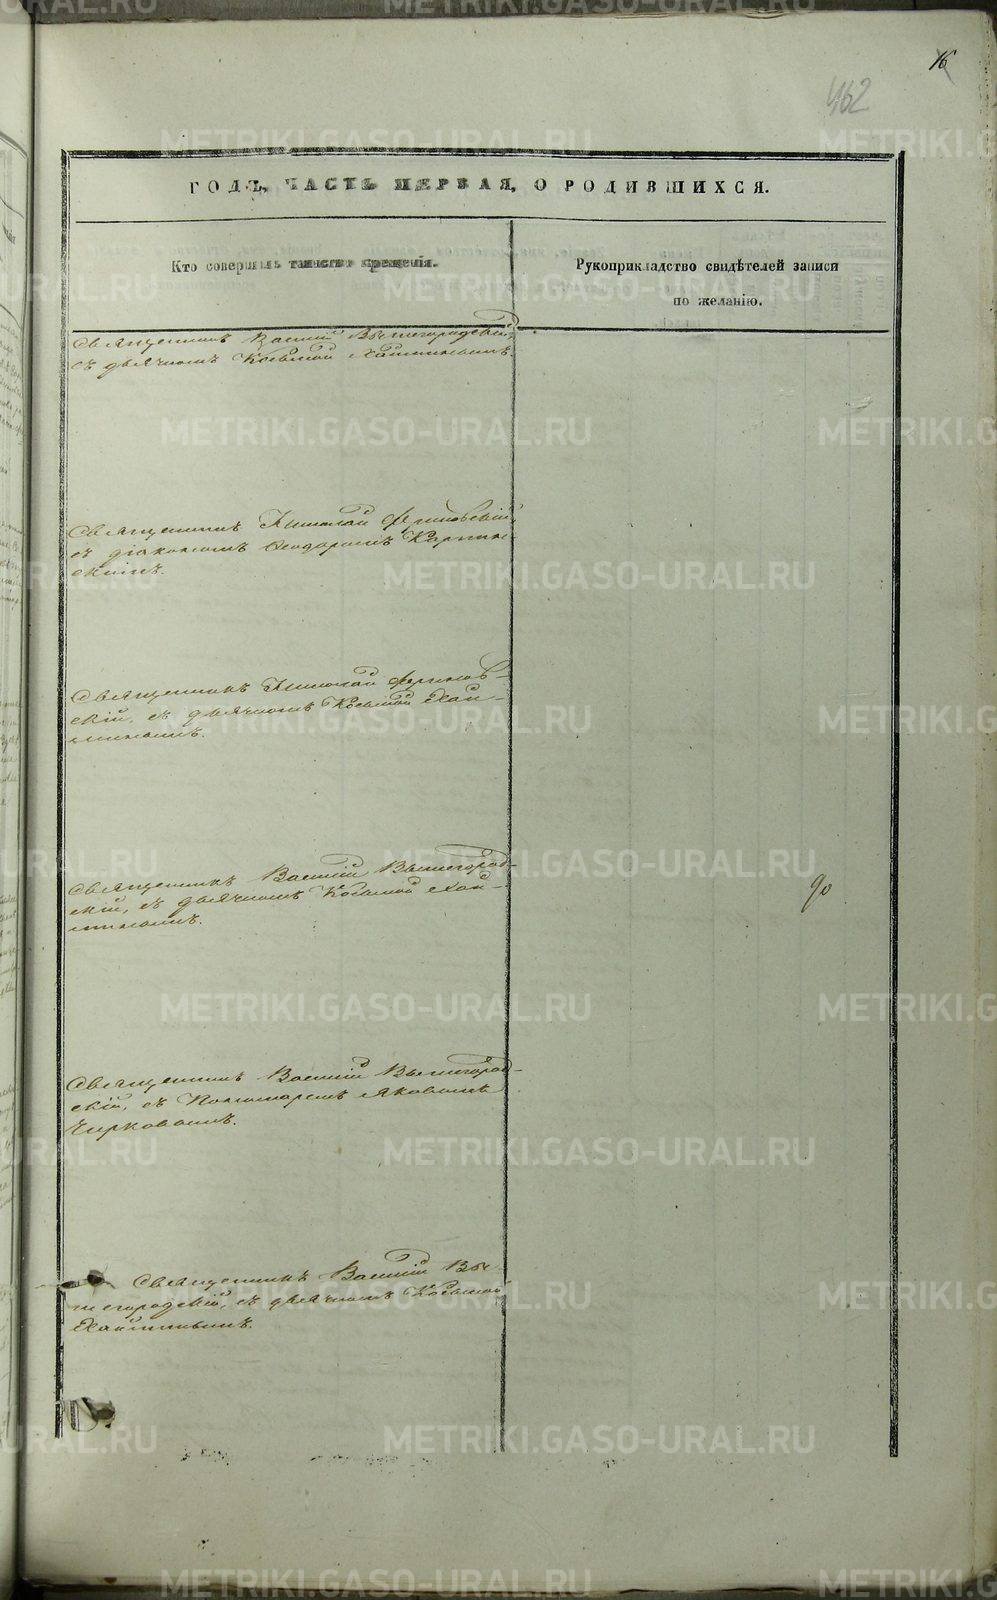 16
462
ГОДЪ, ЧАСТЬ ПЕРВАЯ, О РОДИВШИХСЯ.
Кто совершалъ таинство крещенія.
Рукоприкладство свидѣтелей записи
по желанію.
Священникъ Василій Вышегородскій,
съ дьячкомъ Косьмой
Священникъ Николай
съ діакономъ Ѳеодоромъ Карпин-
скимъ.
Священникъ Николай
скій, съ дьячкомъ Косьмой
Священникъ Василій Вышегород-
скій, съ дьячкомъ Косьмой
90
Священникъ Василій Вышегород-
скій, съ Пономаремъ Яковомъ
Чирковымъ.
Священникъ Василій Вы-
шегородскій, съ дьячкомъ Косьмой
METRIKI.GASO-URAL.RU